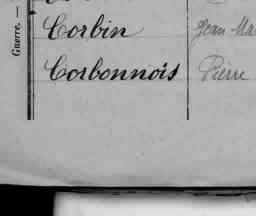 Guerre. —
Corbin Jean Ma
Corbonnois Pierre